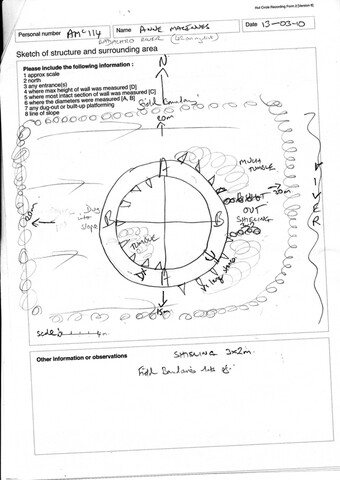 Hut Circle Recording Form 2 [Version 6]
Personal number AMC114 Name ANNE MACINNES Date 13-03-10
RIVER
Sketch of structure and surrounding area
Please include the following information :
1 approx scale
2 north
3 any entrance(s)
4 where max height of wall was measured [D]
5 where most intact section of wall was measured [C]
6 where the diameters were measured [A, B]
7 any dug-out or built-up platforming
8 line of slope
N
Field Boundary
20m
MUCH
TUMBLE
20m
OUT
SHIELING
3x2
RIVER
20m
Dug
into
slope
B
B
TUMBLE
A
15m
scale
Other information or observations
SHIELING 3x2m.
Field Boundaries lots of